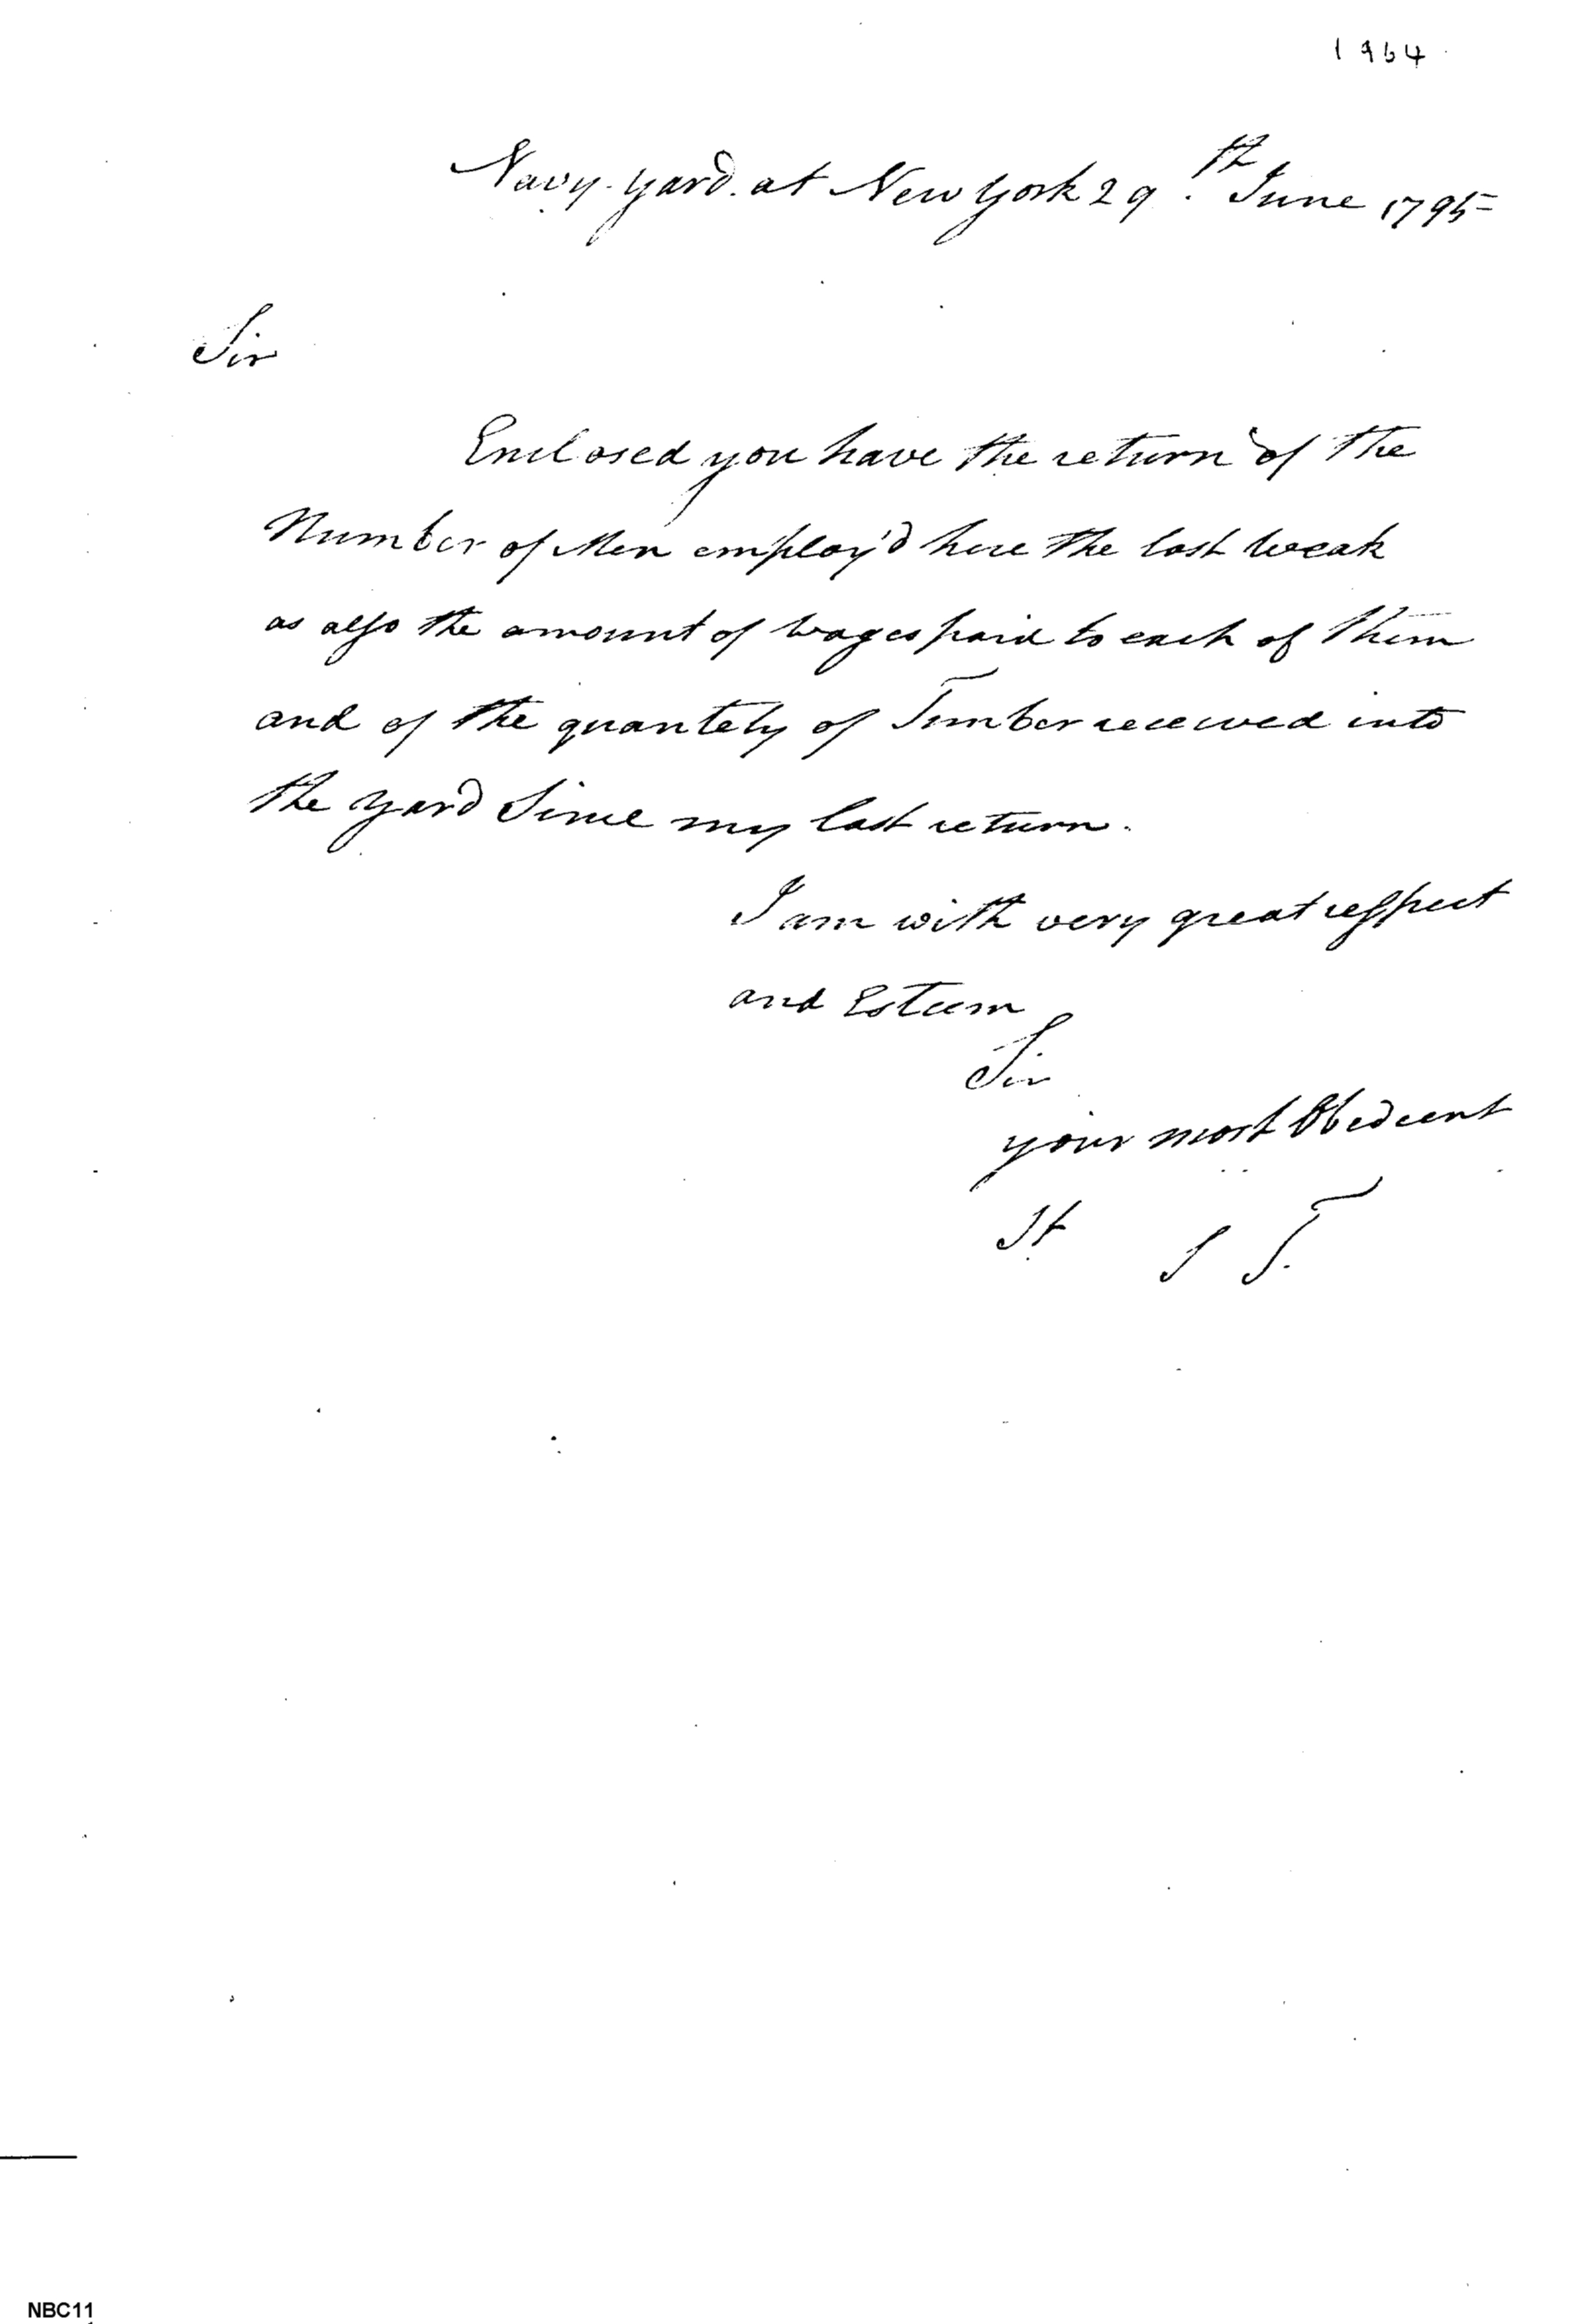 1964
Navy-yard. at New York 29th June 1795
Sir
Enclosed you have the return of the
Number of Men employ'd here the last weak
as also the amount of wages paid to each of them
and of the quantety of Timber received into
the yard Since my last return.
I am with very great respect
and Esteem
Sir
your most Obedient
St J T.
NBC11